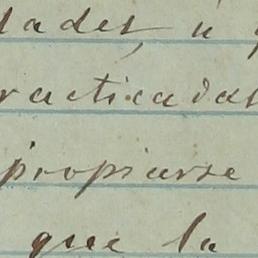 dades, ú
racticadas
propiarse
que la